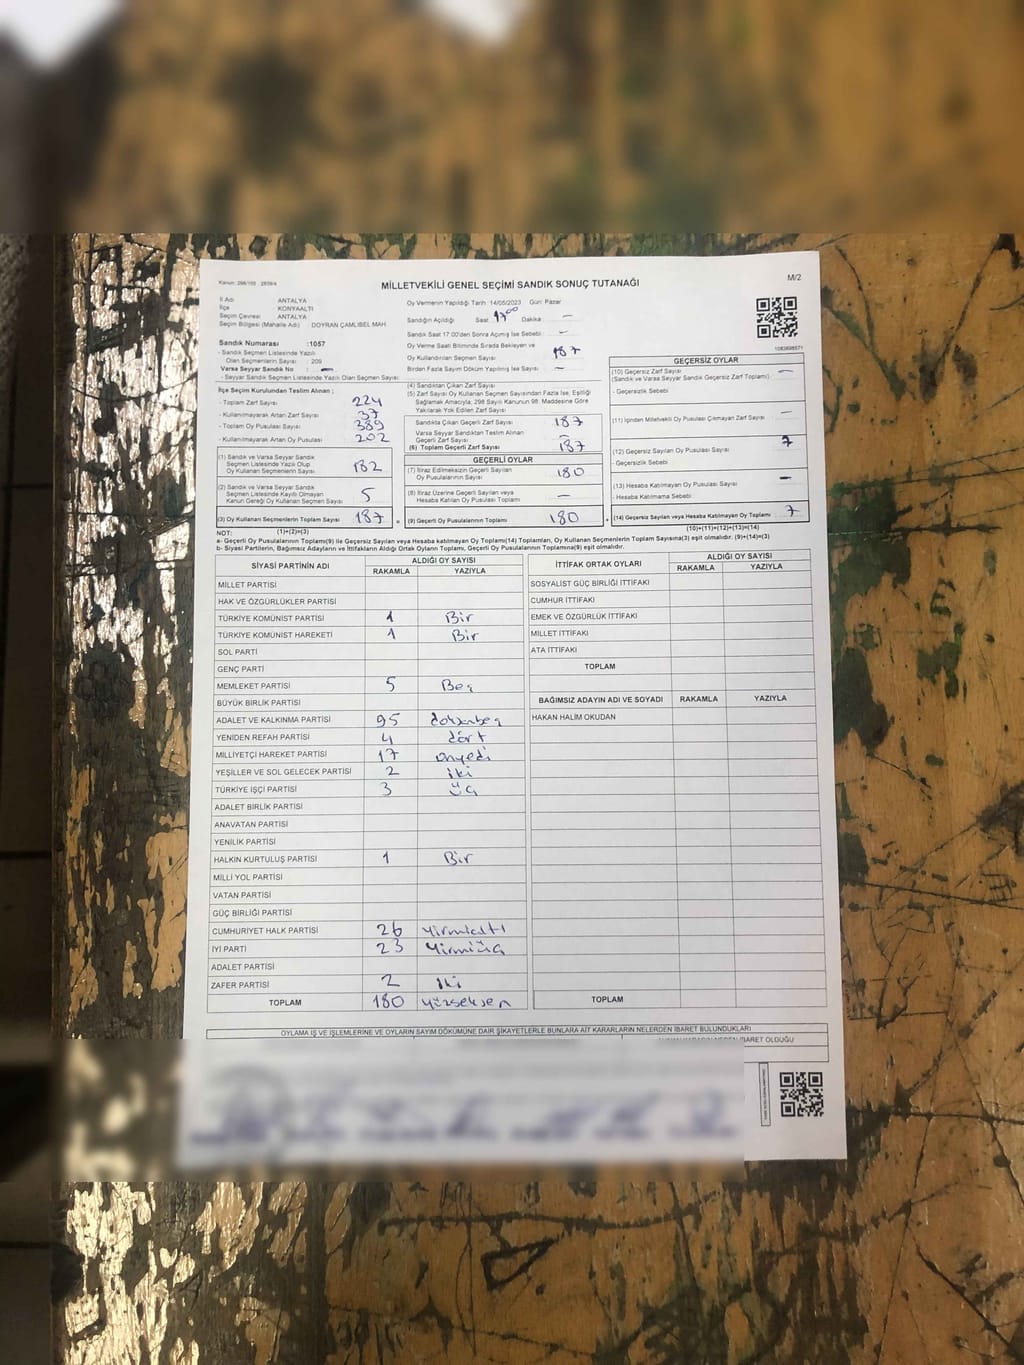 Kanun: 298/105 , 2839/4
MİLLETVEKİLİ GENEL SEÇİMİ SANDIK SONUÇ TUTANAĞI
M/2
İl Adı ANTALYA
İlçe KONYAALTI
Seçim Çevresi ANTALYA
Seçim Bölgesi (Mahalle Adı) DOYRAN ÇAMLIBEL MAH.
Sandık Numarası :1057
- Sandık Seçmen Listesinde Yazılı
Olan Seçmenlerin Sayısı : 209
Varsa Seyyar Sandık No : –
- Seyyar Sandık Seçmen Listesinde Yazılı Olan Seçmen Sayısı:
Oy Vermenin Yapıldığı Tarih :14/05/2023 Gün: Pazar
Sandığın Açıldığı Saat 17:00 Dakika : –
Sandık Saat 17:00'den Sonra Açılmış İse Sebebi: –
Oy Verme Saati Bitiminde Sırada Bekleyen ve
Oy Kullandırılan Seçmen Sayısı : 187
Birden Fazla Sayım Döküm Yapılmış İse Sayısı : –
1083698571
İlçe Seçim Kurulundan Teslim Alınan ;
- Toplam Zarf Sayısı : 224
- Kullanılmayarak Artan Zarf Sayısı : 37
- Toplam Oy Pusulası Sayısı : 389
- Kullanılmayarak Artan Oy Pusulası : 202
(1) Sandık ve Varsa Seyyar Sandık
Seçmen Listesinde Yazılı Olup
Oy Kullanan Seçmenlerin Sayısı 182
(2) Sandık ve Varsa Seyyar Sandık
Seçmen Listesinde Kayıtlı Olmayan
Kanun Gereği Oy Kullanan Seçmen Sayısı 5
(3) Oy Kullanan Seçmenlerin Toplam Sayısı 187
(1)+(2)=(3)
(4) Sandıktan Çıkan Zarf Sayısı
(5) Zarf Sayısı Oy Kullanan Seçmen Sayısından Fazla İse, Eşitliği
Sağlamak Amacıyla; 298 Sayılı Kanunun 98. Maddesine Göre
Yakılarak Yok Edilen Zarf Sayısı
Sandıkta Çıkan Geçerli Zarf Sayısı 187
Varsa Seyyar Sandıktan Teslim Alınan
Geçerli Zarf Sayısı –
(6) Toplam Geçerli Zarf Sayısı 187
GEÇERLİ OYLAR
(7) İtiraz Edilmeksizin Geçerli Sayılan
Oy Pusulalarının Sayısı 180
(8) İtiraz Üzerine Geçerli Sayılan veya
Hesaba Katılan Oy Pusulası Toplamı –
= (9) Geçerli Oy Pusulalarının Toplamı 180
GEÇERSİZ OYLAR
(10) Geçersiz Zarf Sayısı –
(Sandık ve Varsa Seyyar Sandık Geçersiz Zarf Toplamı)
- Geçersizlik Sebebi
(11) İçinden Milletvekili Oy Pusulası Çıkmayan Zarf Sayısı –
(12) Geçersiz Sayılan Oy Pusulası Sayısı 7
- Geçersizlik Sebebi
(13) Hesaba Katılmayan Oy Pusulası Sayısı –
- Hesaba Katılmama Sebebi
+ (14) Geçersiz Sayılan veya Hesaba Katılmayan Oy Toplamı 7
(10)+(11)+(12)+(13)=(14)
NOT:
a- Geçerli Oy Pusulalarının Toplamı(9) ile Geçersiz Sayılan veya Hesaba katılmayan Oy Toplamı(14) Toplamları, Oy Kullanan Seçmenlerin Toplam Sayısına(3) eşit olmalıdır. (9)+(14)=(3)
b- Siyasi Partilerin, Bağımsız Adayların ve İttifakların Aldığı Ortak Oyların Toplamı, Geçerli Oy Pusulalarının Toplamına(9) eşit olmalıdır.
SİYASİ PARTİNİN ADI ALDIĞI OY SAYISI
RAKAMLA YAZIYLA
MİLLET PARTİSİ
HAK VE ÖZGÜRLÜKLER PARTİSİ
TÜRKİYE KOMÜNİST PARTİSİ 1 Bir
TÜRKİYE KOMÜNİST HAREKETİ 1 Bir
SOL PARTİ
GENÇ PARTİ
MEMLEKET PARTİSİ 5 Beş
BÜYÜK BİRLİK PARTİSİ
ADALET VE KALKINMA PARTİSİ 95 doksanbeş
YENİDEN REFAH PARTİSİ 4 dört
MİLLİYETÇİ HAREKET PARTİSİ 17 onyedi
YEŞİLLER VE SOL GELECEK PARTİSİ 2 iki
TÜRKİYE İŞÇİ PARTİSİ 3 üç
ADALET BİRLİK PARTİSİ
ANAVATAN PARTİSİ
YENİLİK PARTİSİ
HALKIN KURTULUŞ PARTİSİ 1 Bir
MİLLİ YOL PARTİSİ
VATAN PARTİSİ
GÜÇ BİRLİĞİ PARTİSİ
CUMHURİYET HALK PARTİSİ 26 yirmialtı
İYİ PARTİ 23 yirmiüç
ADALET PARTİSİ
ZAFER PARTİSİ 2 iki
TOPLAM 180 yüzseksen
İTTİFAK ORTAK OYLARI ALDIĞI OY SAYISI
RAKAMLA YAZIYLA
SOSYALİST GÜÇ BİRLİĞİ İTTİFAKI
CUMHUR İTTİFAKI
EMEK VE ÖZGÜRLÜK İTTİFAKI
MİLLET İTTİFAKI
ATA İTTİFAKI
TOPLAM
BAĞIMSIZ ADAYIN ADI VE SOYADI RAKAMLA YAZIYLA
HAKAN HALİM OKUDAN
TOPLAM
OYLAMA İŞ VE İŞLEMLERİNE VE OYLARIN SAYIM DÖKÜMÜNE DAİR ŞİKAYETLERLE BUNLARA AİT KARARLARIN NELERDEN İBARET BULUNDUKLARI
İBARET OLDUĞU